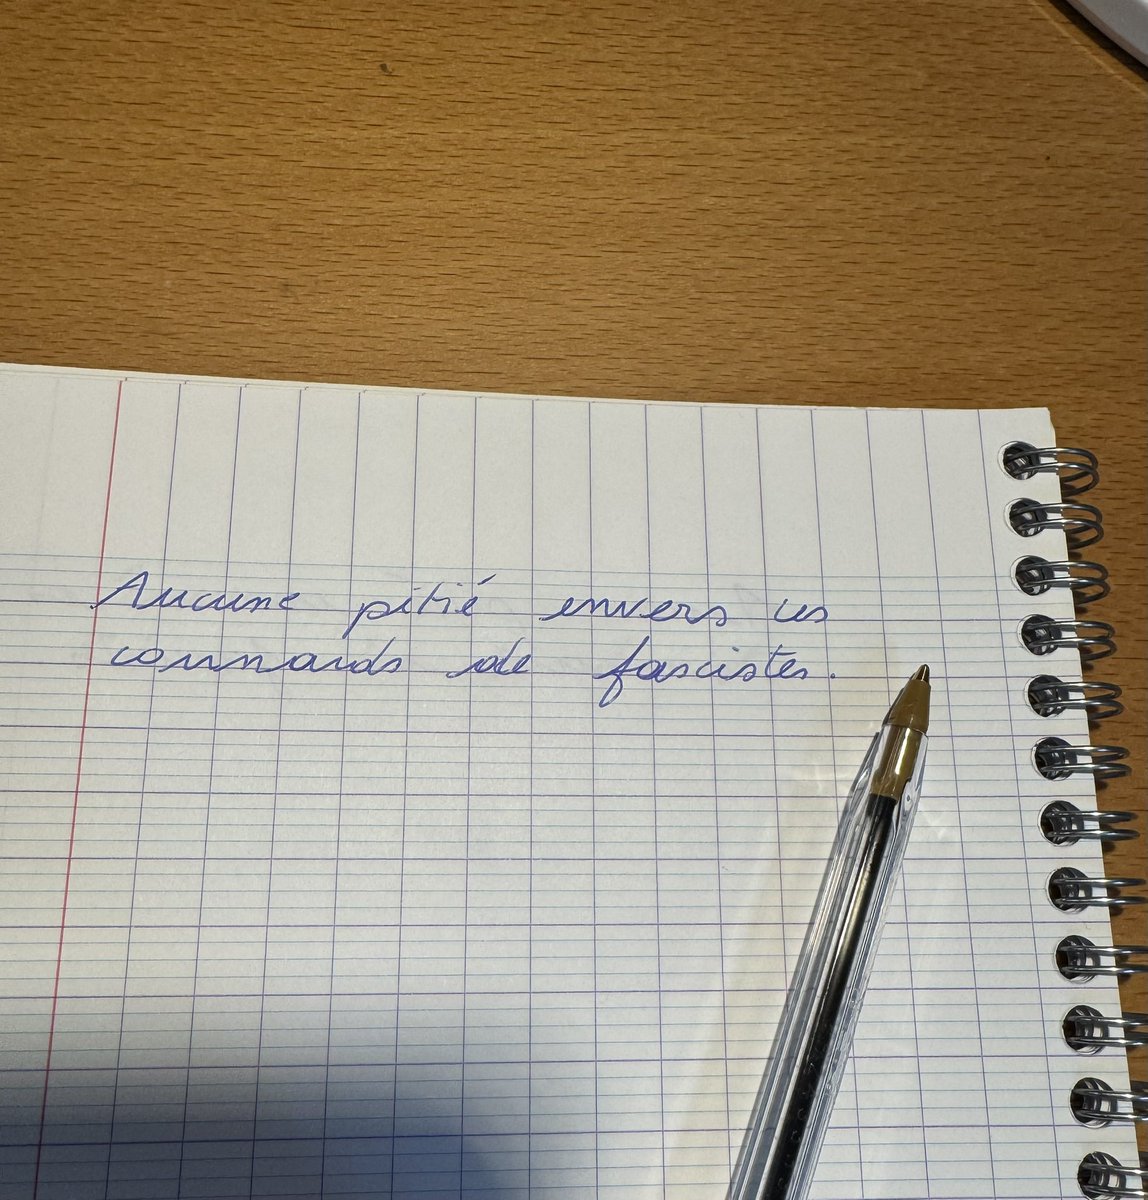 Aucune pitié envers ces
connards de fascistes.